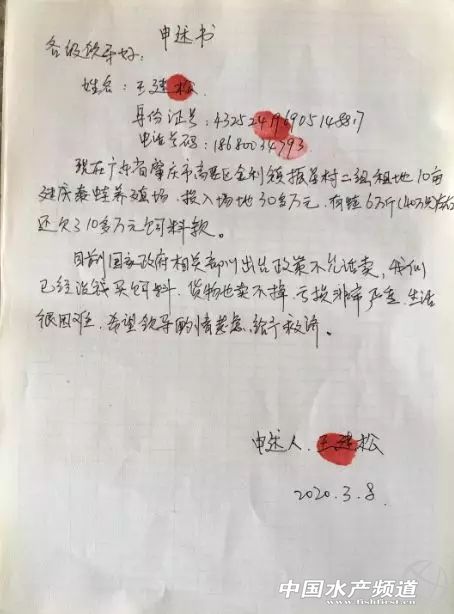 申述书
各级领导好：
姓名：王建松
身份证号：432524196905148817
电话号码：18680034793
现在广东省肇庆市高要区金利镇振星村二组租地10亩
建庆泰蛙养殖场，投入场地30多万元，有蛙6万斤(40万元)左右
还欠了10多万元饲料款。
目前国家政府相关部门出台政策不允许卖，我们
已经没钱买饲料，货物也卖不掉，亏损非常严重，生活
很困难，希望领导酌情考虑，给予救济。
申述人：王建松
2020.3.8
中国水产频道
www.fishfirst.cn